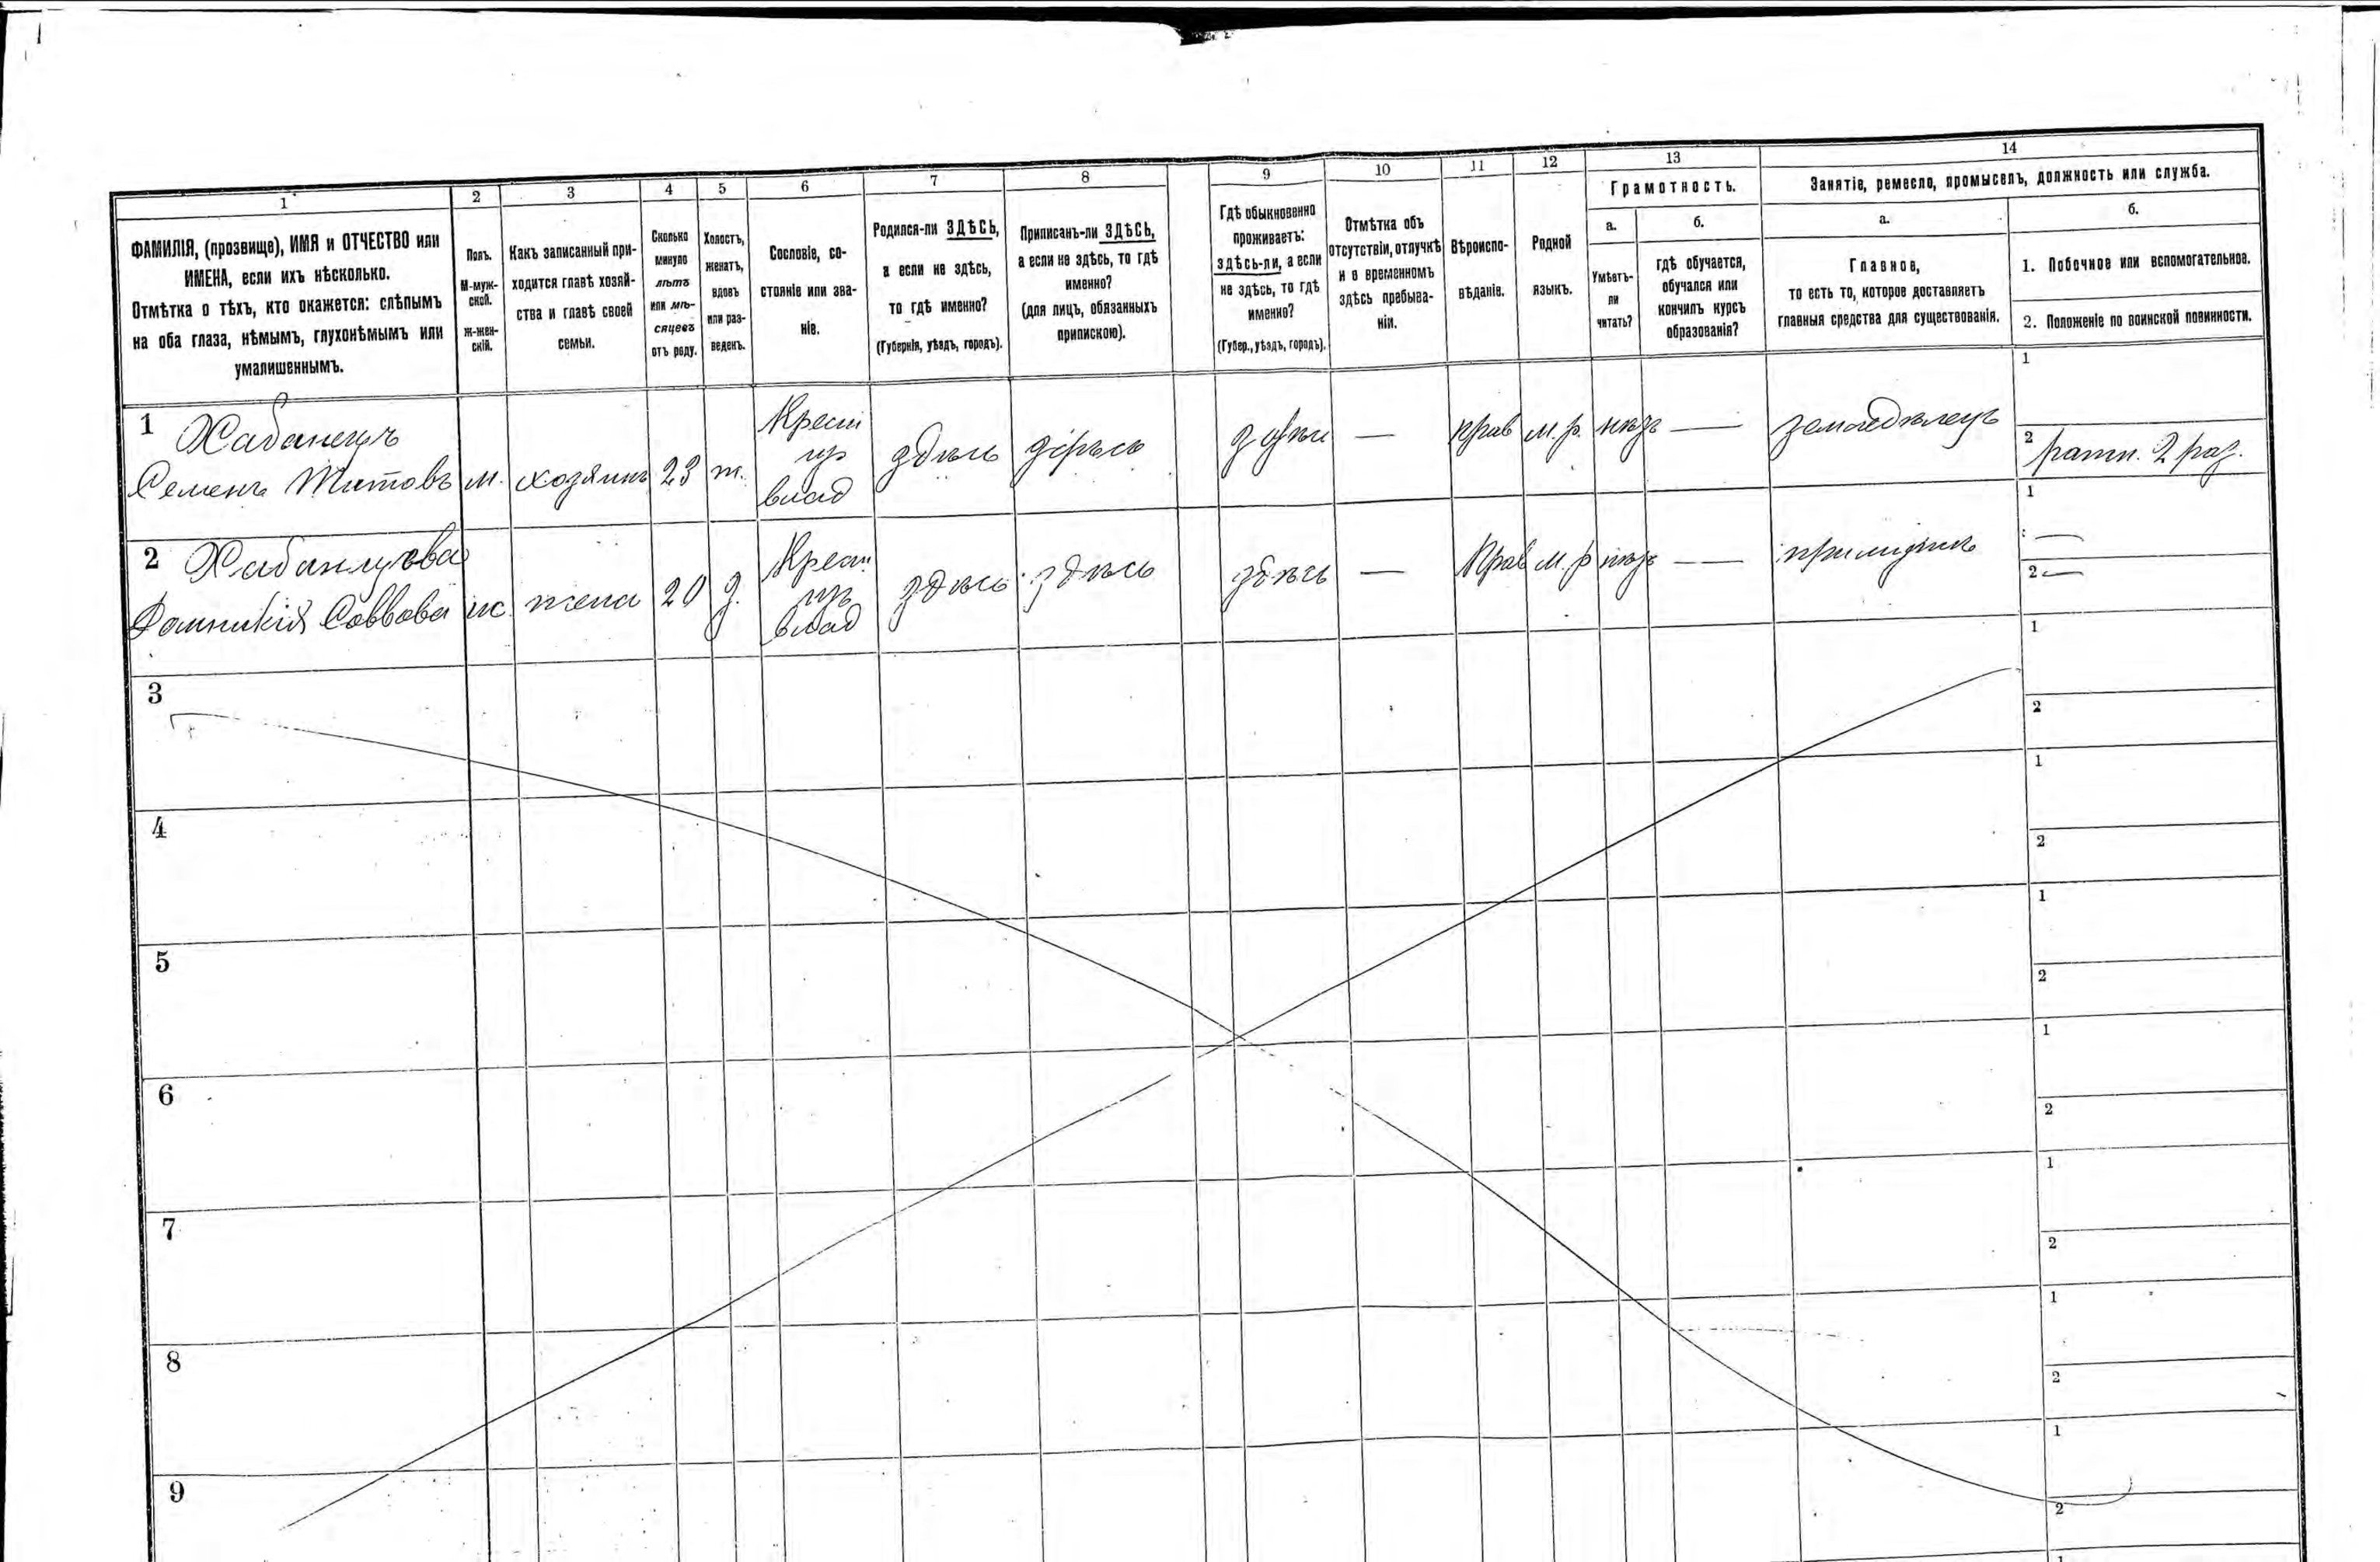 1 2 3 4 5 6 7 8 9 10 11 12 13 14
ФАМИЛІЯ, (прозвище), ИМЯ и ОТЧЕСТВО или
ИМЕНА, если ихъ нѣсколько.
Отмѣтка о тѣхъ, кто окажется: слѣпымъ
на оба глаза, нѣмымъ, глухонѣмымъ или
умалишеннымъ.
Полъ.
М-муж-
ской.
ж-жен-
скій.
Какъ записанный при-
ходится главѣ хозяй-
ства и главѣ своей
семьи.
Сколько
минуло
лѣтъ
или мѣ-
сяцевъ
отъ роду.
Холостъ,
женатъ,
вдовъ
или раз-
веденъ.
Сословіе, со-
стояніе или зва-
ніе.
Родился-ли ЗДѢСЬ,
а если не здѣсь,
то гдѣ именно?
(Губернія, уѣздъ, городъ).
Приписанъ-ли ЗДѢСЬ,
а если не здѣсь, то гдѣ
именно?
(для лицъ, обязанныхъ
припискою).
Гдѣ обыкновенно
проживаетъ:
здѣсь-ли, а если
не здѣсь, то гдѣ
именно?
(Губер., уѣздъ, городъ).
Отмѣтка объ
отсутствіи, отлучкѣ
и о временномъ
здѣсь пребыва-
ніи.
Вѣроиспо-
вѣданіе.
Родной
языкъ.
Грамотность.
а.
Умѣетъ-
ли
читать?
б.
гдѣ обучается,
обучался или
кончилъ курсъ
образованія?
Занятіе, ремесло, промыселъ, должность или служба.
а.
Главное,
то есть то, которое доставляетъ
главныя средства для существованія.
б.
1. Побочное или вспомогательное.
2. Положеніе по воинской повинности.
1 Хабанецъ
Семенъ Титовъ
м.
хозяинъ
23
ж.
Крест
изъ
влад
здѣсь
здѣсь
здѣсь
—
прав
м.р.
нѣтъ
—
земледѣлецъ
1
2 ратн. 2 раз.
2
Савова
ж
жена
20
з.
Крест
изъ
влад
здѣсь
здѣсь
здѣсь
—
Прав
м.р
нѣтъ
—
при мужѣ
1 —
2 —
3
1
2
4
1
2
5
1
2
6
1
2
7
1
2
8
1
2
9
1
2